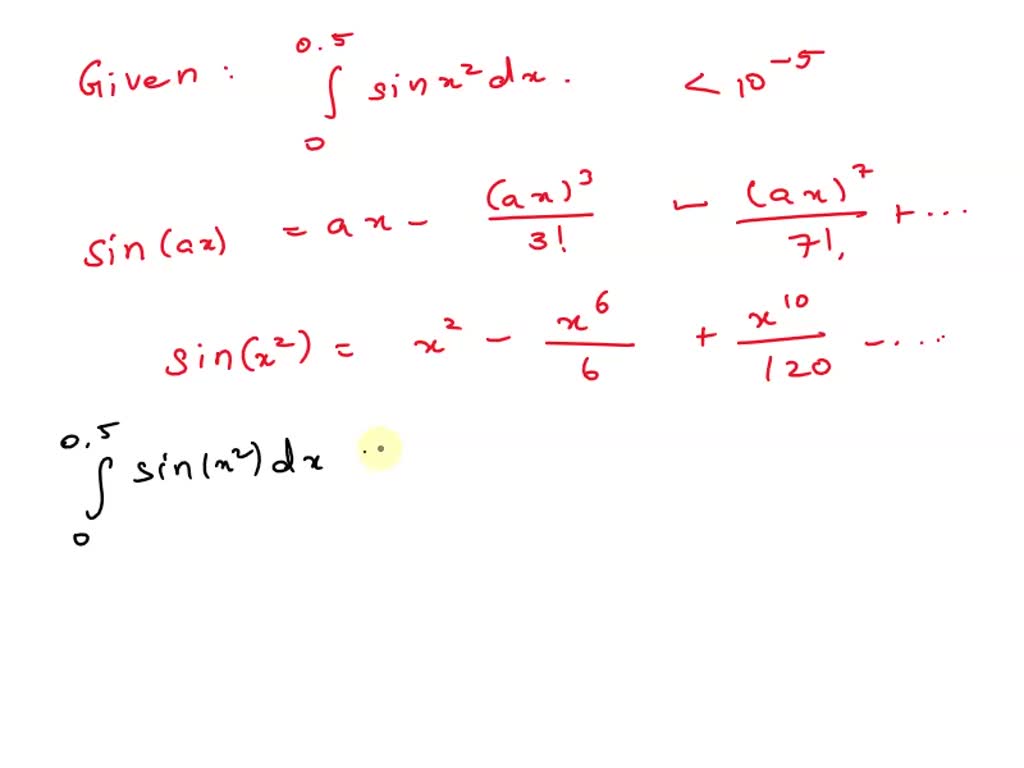 Given : ∫₀^0.5 sin x² dx. < 10⁻⁵
sin(ax) = ax - (ax)³/3! - (ax)⁷/7! + ...
sin(x²) = x² - x⁶/6 + x¹⁰/120 - ....
∫₀^0.5 sin(x²) dx